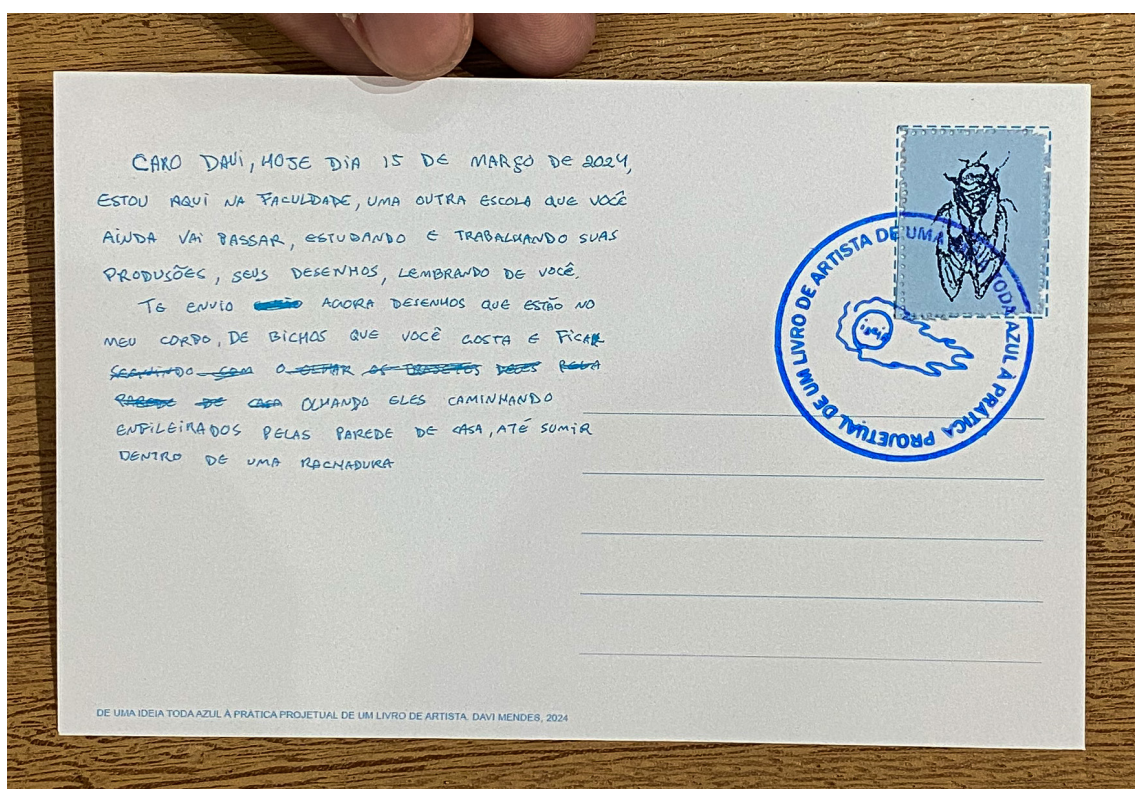 CARO DAVI, HOJE DIA 15 DE MARÇO DE 2024,
ESTOU AQUI NA FACULDADE, UMA OUTRA ESCOLA QUE VOCÊ
AINDA VAI PASSAR, ESTUDANDO E TRABALHANDO SUAS
PRODUSÕES, SEUS DESENHOS, LEMBRANDO DE VOCÊ.
TE ENVIO AGORA DESENHOS QUE ESTÃO NO
MEU CORPO, DE BICHOS QUE VOCÊ GOSTA E FICAR
O
OLHANDO ELES CAMINHANDO
ENFILEIRADOS PELAS PAREDE DE CASA, ATÉ SUMIR
DENTRO DE UMA RACHADURA
DE UMA TODA AZUL À PRÁTICA PROJETUAL DE UM LIVRO DE ARTISTA
DE UMA IDEIA TODA AZUL À PRÁTICA PROJETUAL DE UM LIVRO DE ARTISTA. DAVI MENDES, 2024